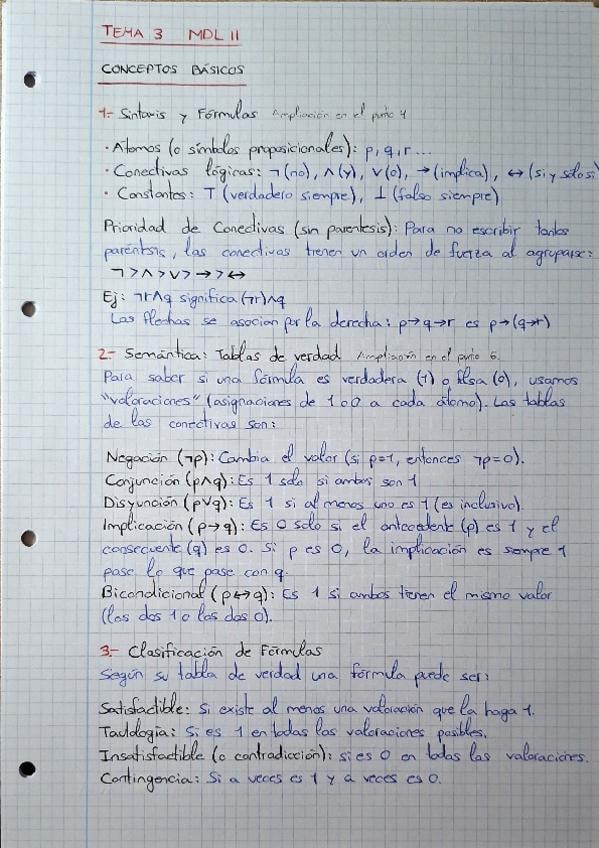 TEMA 3 MDL II
CONCEPTOS BÁSICOS
1.- Sintaxis y Fórmulas Ampliación en el punto 4
· Átomos (o símbolos proposicionales): p, q, r...
· Conectivas lógicas: ¬(no), ∧(y), ∨(o), →(implica), ↔(si y solo si)
· Constantes: ⊤ (verdadero siempre), ⊥ (falso siempre)
Prioridad de Conectivas (sin parentesis): Para no escribir tantos
paréntesis, las conectivas tienen un orden de fuerza al agruparse:
¬>∧>∨>→>↔
Ej: ¬r∧q significa (¬r)∧q
Las flechas se asocian por la derecha: p→q→r es p→(q→r)
2.- Semántica: Tablas de verdad Ampliación en el punto 6.
Para saber si una fórmula es verdadera (1) o falsa (0), usamos
"valoraciones" (asignaciones de 1 o 0 a cada átomo). Las tablas
de las conectivas son:
Negación (¬p): Cambia el valor (si p=1, entonces ¬p=0).
Conjunción (p∧q): Es 1 solo si ambos son 1
Disyunción (p∨q): Es 1 si al menos uno es 1 (es inclusivo)
Implicación (p→q): Es 0 solo si el antecedente (p) es 1 y el
consecuente (q) es 0. Si p es 0, la implicación es siempre 1
pase lo que pase con q.
Bicondicional (p↔q): Es 1 si ambos tienen el mismo valor
(los dos 1 o los dos 0).
3.- Clasificación de Fórmulas
Según su tabla de verdad una fórmula puede ser:
Satisfactible: Si existe al menos una valoración que la haga 1.
Tautología: Si es 1 en todas las valoraciones posibles.
Insatisfactible (o contradicción): si es 0 en todas las valoraciones.
Contingencia: Si a veces es 1 y a veces es 0.